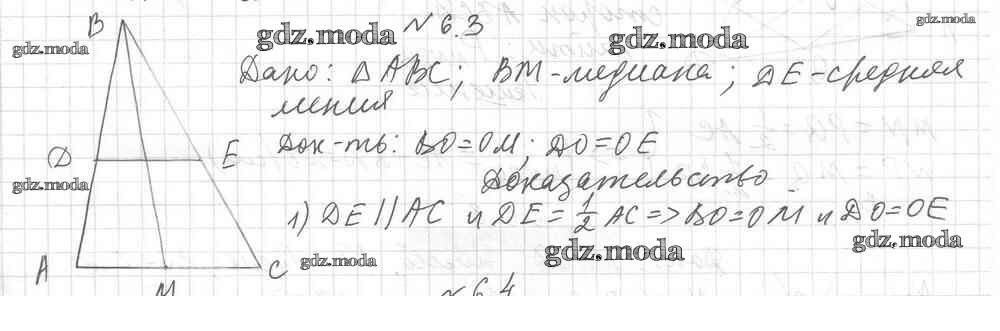 № 6.3
Дано: △ABC; BM-медиана; DE-средняя
линия
Док-ть: BO=OM; DO=OE
Доказательство
1) DE || AC и DE = 1/2 AC => BO=OM и DO=OE
B
D E
A M C
№ 6.4
gdz.moda
gdz.moda
gdz.moda
gdz.moda
gdz.moda
gdz.moda
gdz.moda
gdz.moda